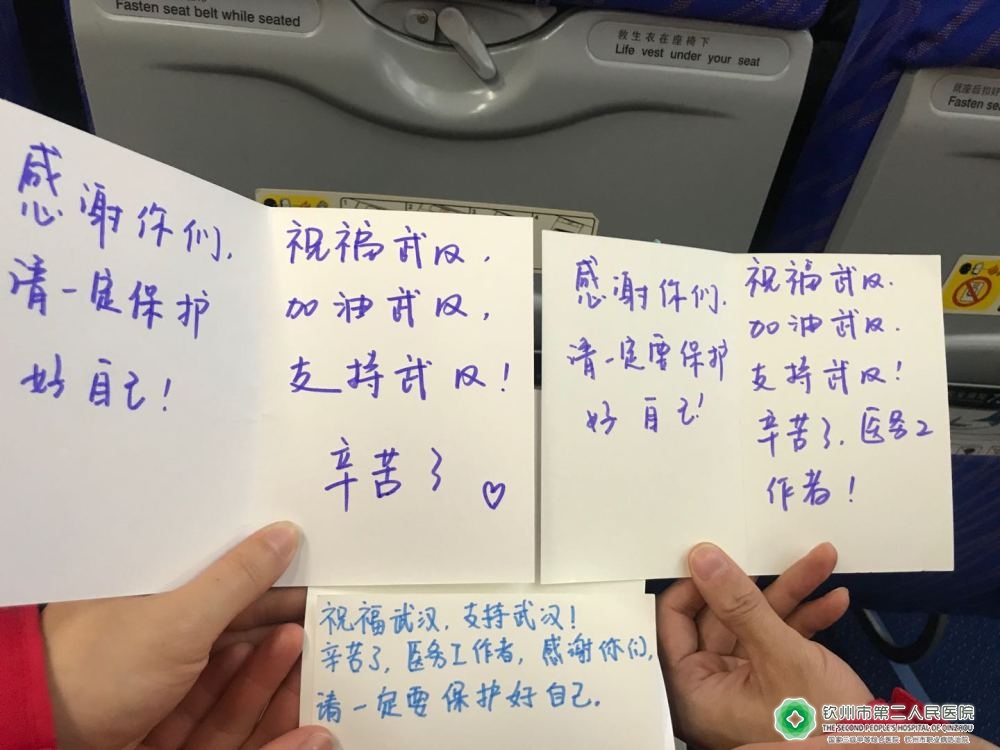 Fasten seat belt while seated
救生衣在座椅下
Life vest under your seat
Fasten sea
感谢你们,
请一定保护
好自己!
祝福武汉,
加油武汉,
支持武汉!
辛苦了♡
感谢你们.
请一定要保护
好自己!
祝福武汉.
加油武汉.
支持武汉!
辛苦了,医务工
作者!
祝福武汉,支持武汉!
辛苦了,医务工作者,感谢你们,
请一定要保护好自己.
钦州市第二人民医院
THE SECOND PEOPLE'S HOSPITAL OF QINZHOU